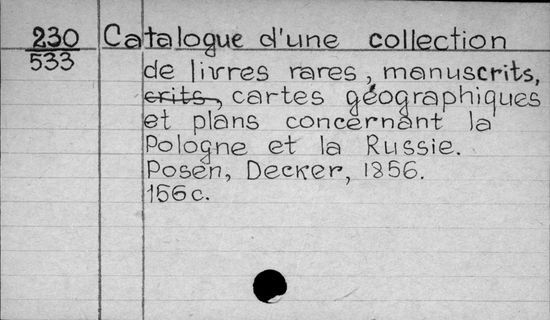 230 Catalogue d'une collection
533
de livres rares, manuscrits,
crits, cartes géographiques
et plans concernant la
Pologne et la Russie.
Posen, Decker, 1856.
156 c.